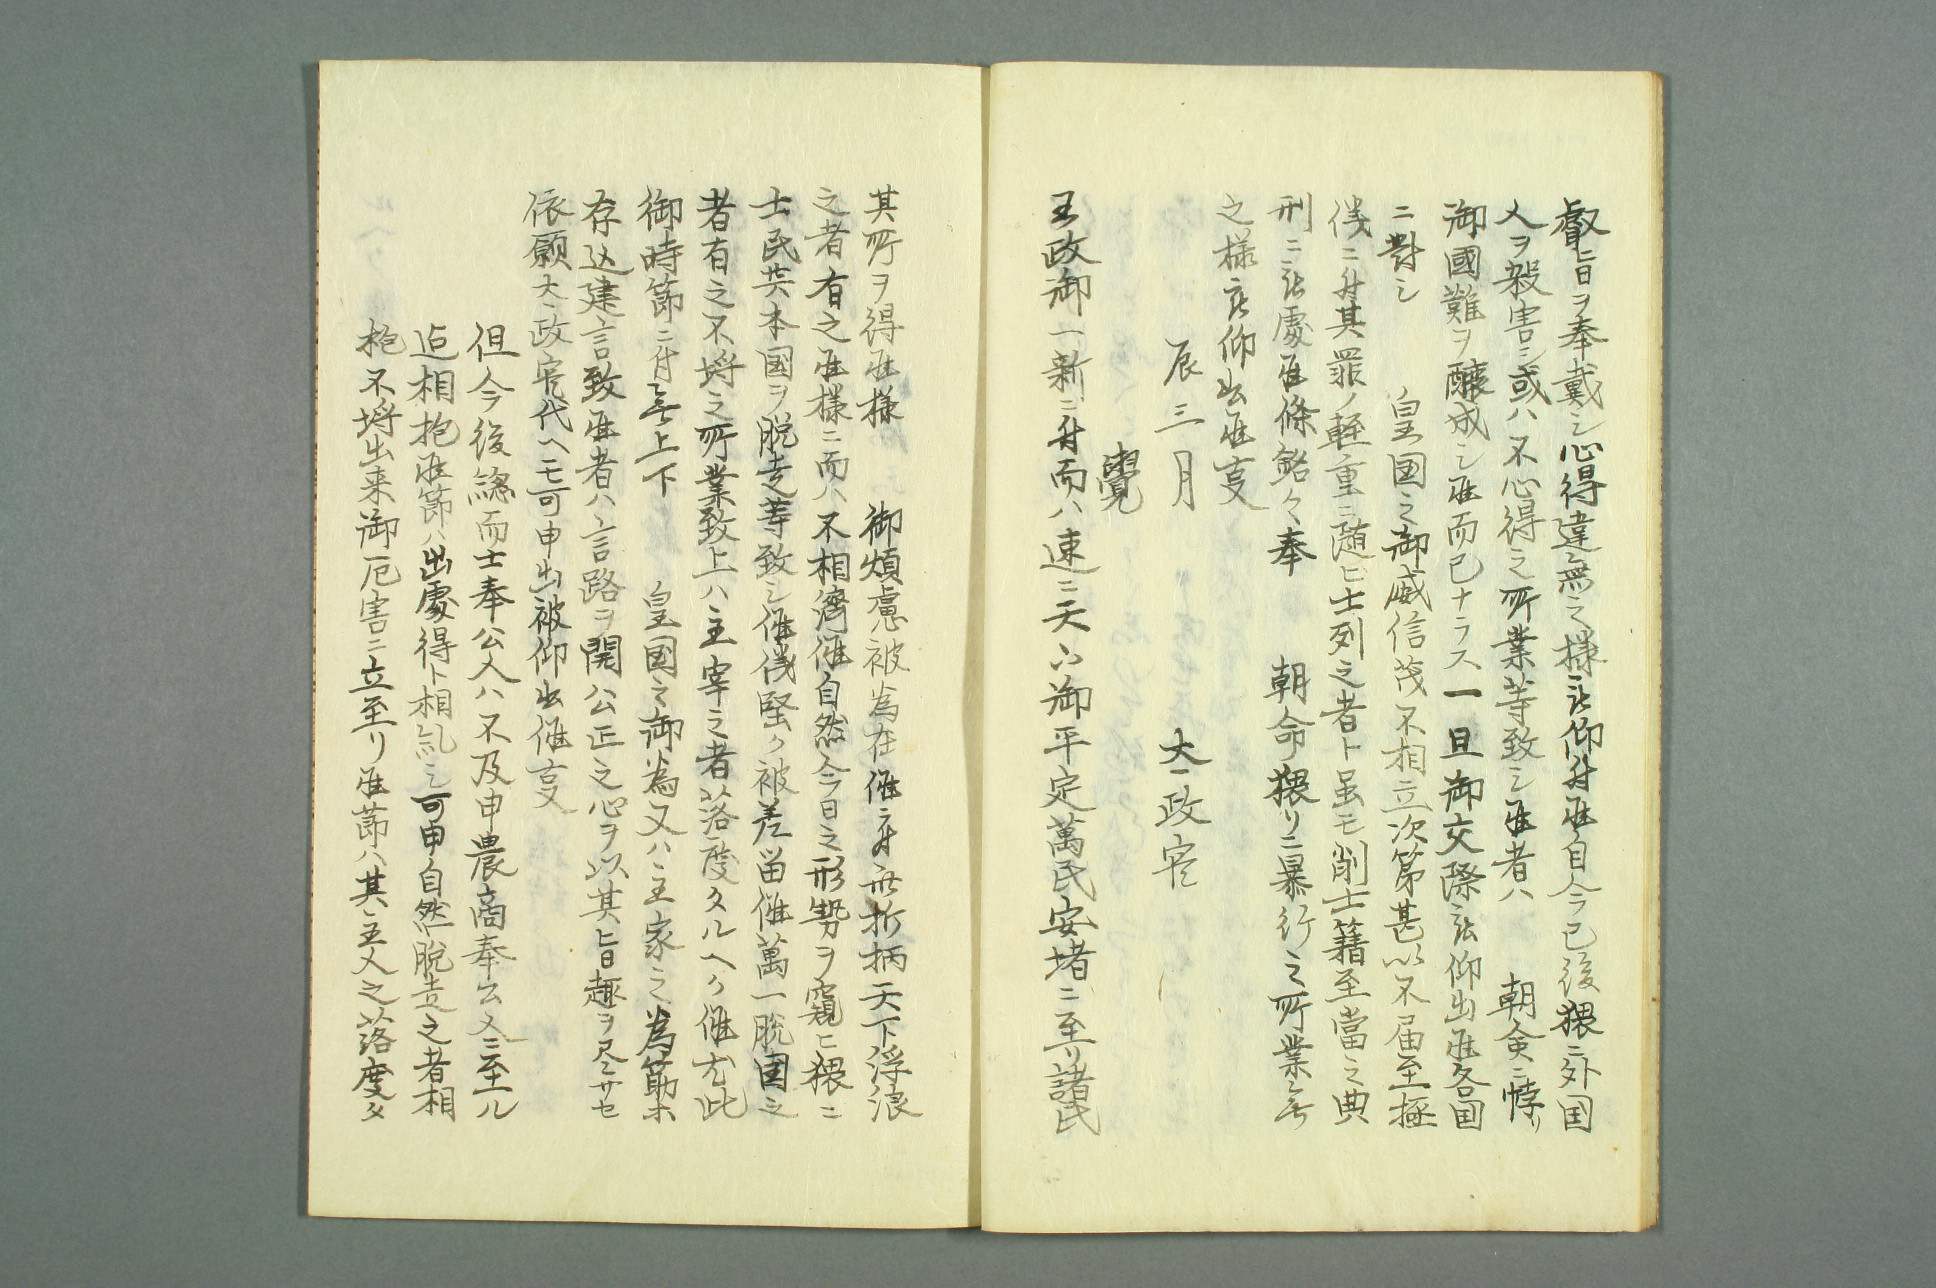 叡旨ヲ奉戴シ心得違無之様被仰付候自今已後猥ニ外国
人ヲ殺害シ或ハ不心得之所業等致シ候者ハ　朝命ニ悖リ
御國難ヲ醸成シ候而已ナラス一旦御交際被仰出候各国
ニ對シ　皇国之御威信茂不相立次第甚以不届至極
儀ニ付其罪ノ軽重ニ随ヒ士列之者ト虽モ削士籍至當之典
刑ニ被處候條銘々奉　朝命猥リニ暴行之所業無
之様被仰出候事
辰三月　太政官
覺
王政御一新ニ付而ハ速ニ天下御平定萬民安堵ニ至リ諸民
其所ヲ得候様　御煩慮被為在候ニ付此折柄天下浮浪
之者有之候様ニ而ハ不相濟候自然今日之形勢ヲ窺ヒ猥ニ
士民共本国ヲ脱走等致シ候儀堅ク被差留候萬一脱国之
者有之不埒之所業致上ハ主宰之者落度タルヘク候尤此
御時節ニ付無上下　皇国之御為又ハ主家之為筋ホ
存込建言致候者ハ言路ヲ開公正之心ヲ以其旨趣ヲ尽サセ
依願太政官代ヘモ可申出被仰出候事
但今後総而士奉公人ハ不及申農商奉公人ニ至ル
迄相抱候節ハ出處得ト相糺シ可申自然脱走之者相
抱不埒出来御厄害ニ立至リ候節ハ其主人之落度タ